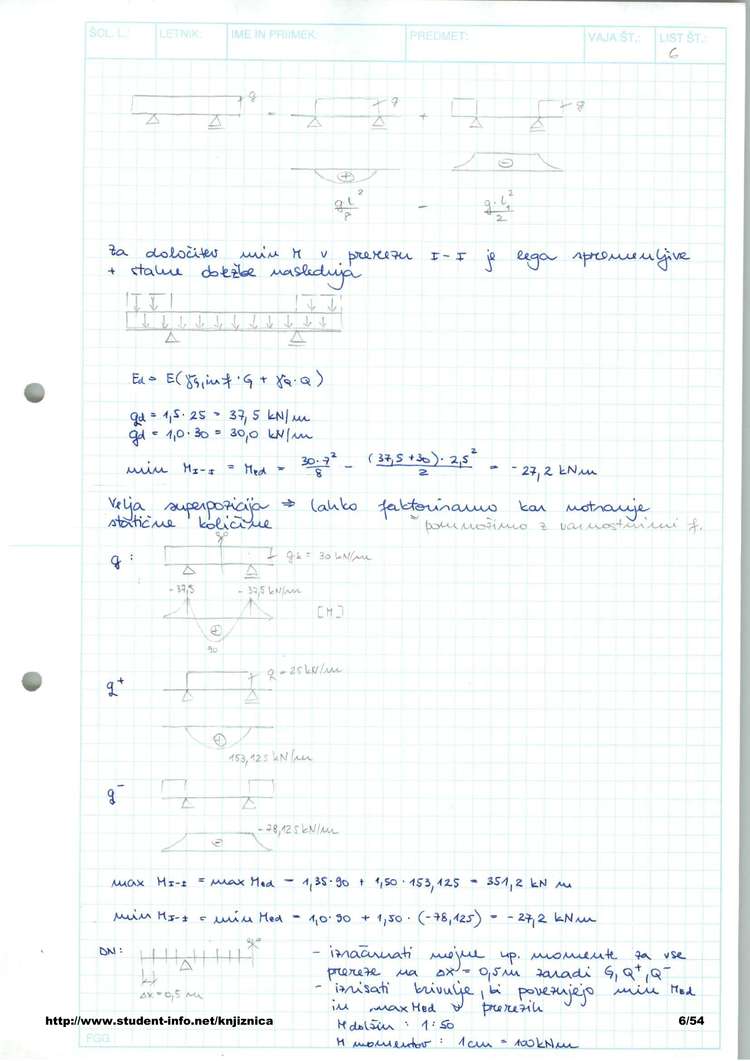 ŠOL. L.: LETNIK: IME IN PRIIMEK: PREDMET: VAJA ŠT.: LIST ŠT.:
6
q = q + q
⊕ ⊖
q·l²/8 - q·l₁²/2
Za določitev min M v prerezu I-I je lega spremenljive
+ stalne obtežbe naslednja
Ed = E(γG,inf · G + γQ · Q)
qd = 1,5 · 25 = 37,5 kN/m
gd = 1,0 · 30 = 30,0 kN/m
min M I-I = Med = 30·7²/8 - (37,5+30)·2,5²/2 = -27,2 kNm
Velja superpozicija ⇒ lahko faktoriramo kar notranje
statične količine = pomnožimo z varnostnimi f.
g: gk = 30 kN/m
-37,5 -37,5 kN/m
[M]
⊕
90
q⁺ q = 25 kN/m
⊕
153,125 kN/m
q⁻
-78,125 kN/m
⊖
max M I-I = max Med = 1,35·90 + 1,50·153,125 = 351,2 kN m
min M I-I = min Med = 1,0·90 + 1,50·(-78,125) = -27,2 kNm
DN: - izračunati mejne up. momente za vse
prereze na Δx = 0,5m zaradi G, Q⁺, Q⁻
Δx = 0,5 m - izrisati krivulje, ki povezujejo min Med
in max Med v prerezih
http://www.student-info.net/knjiznica 6/54
M dolžin : 1:50
M momentov : 1cm = 100kNm
FGG